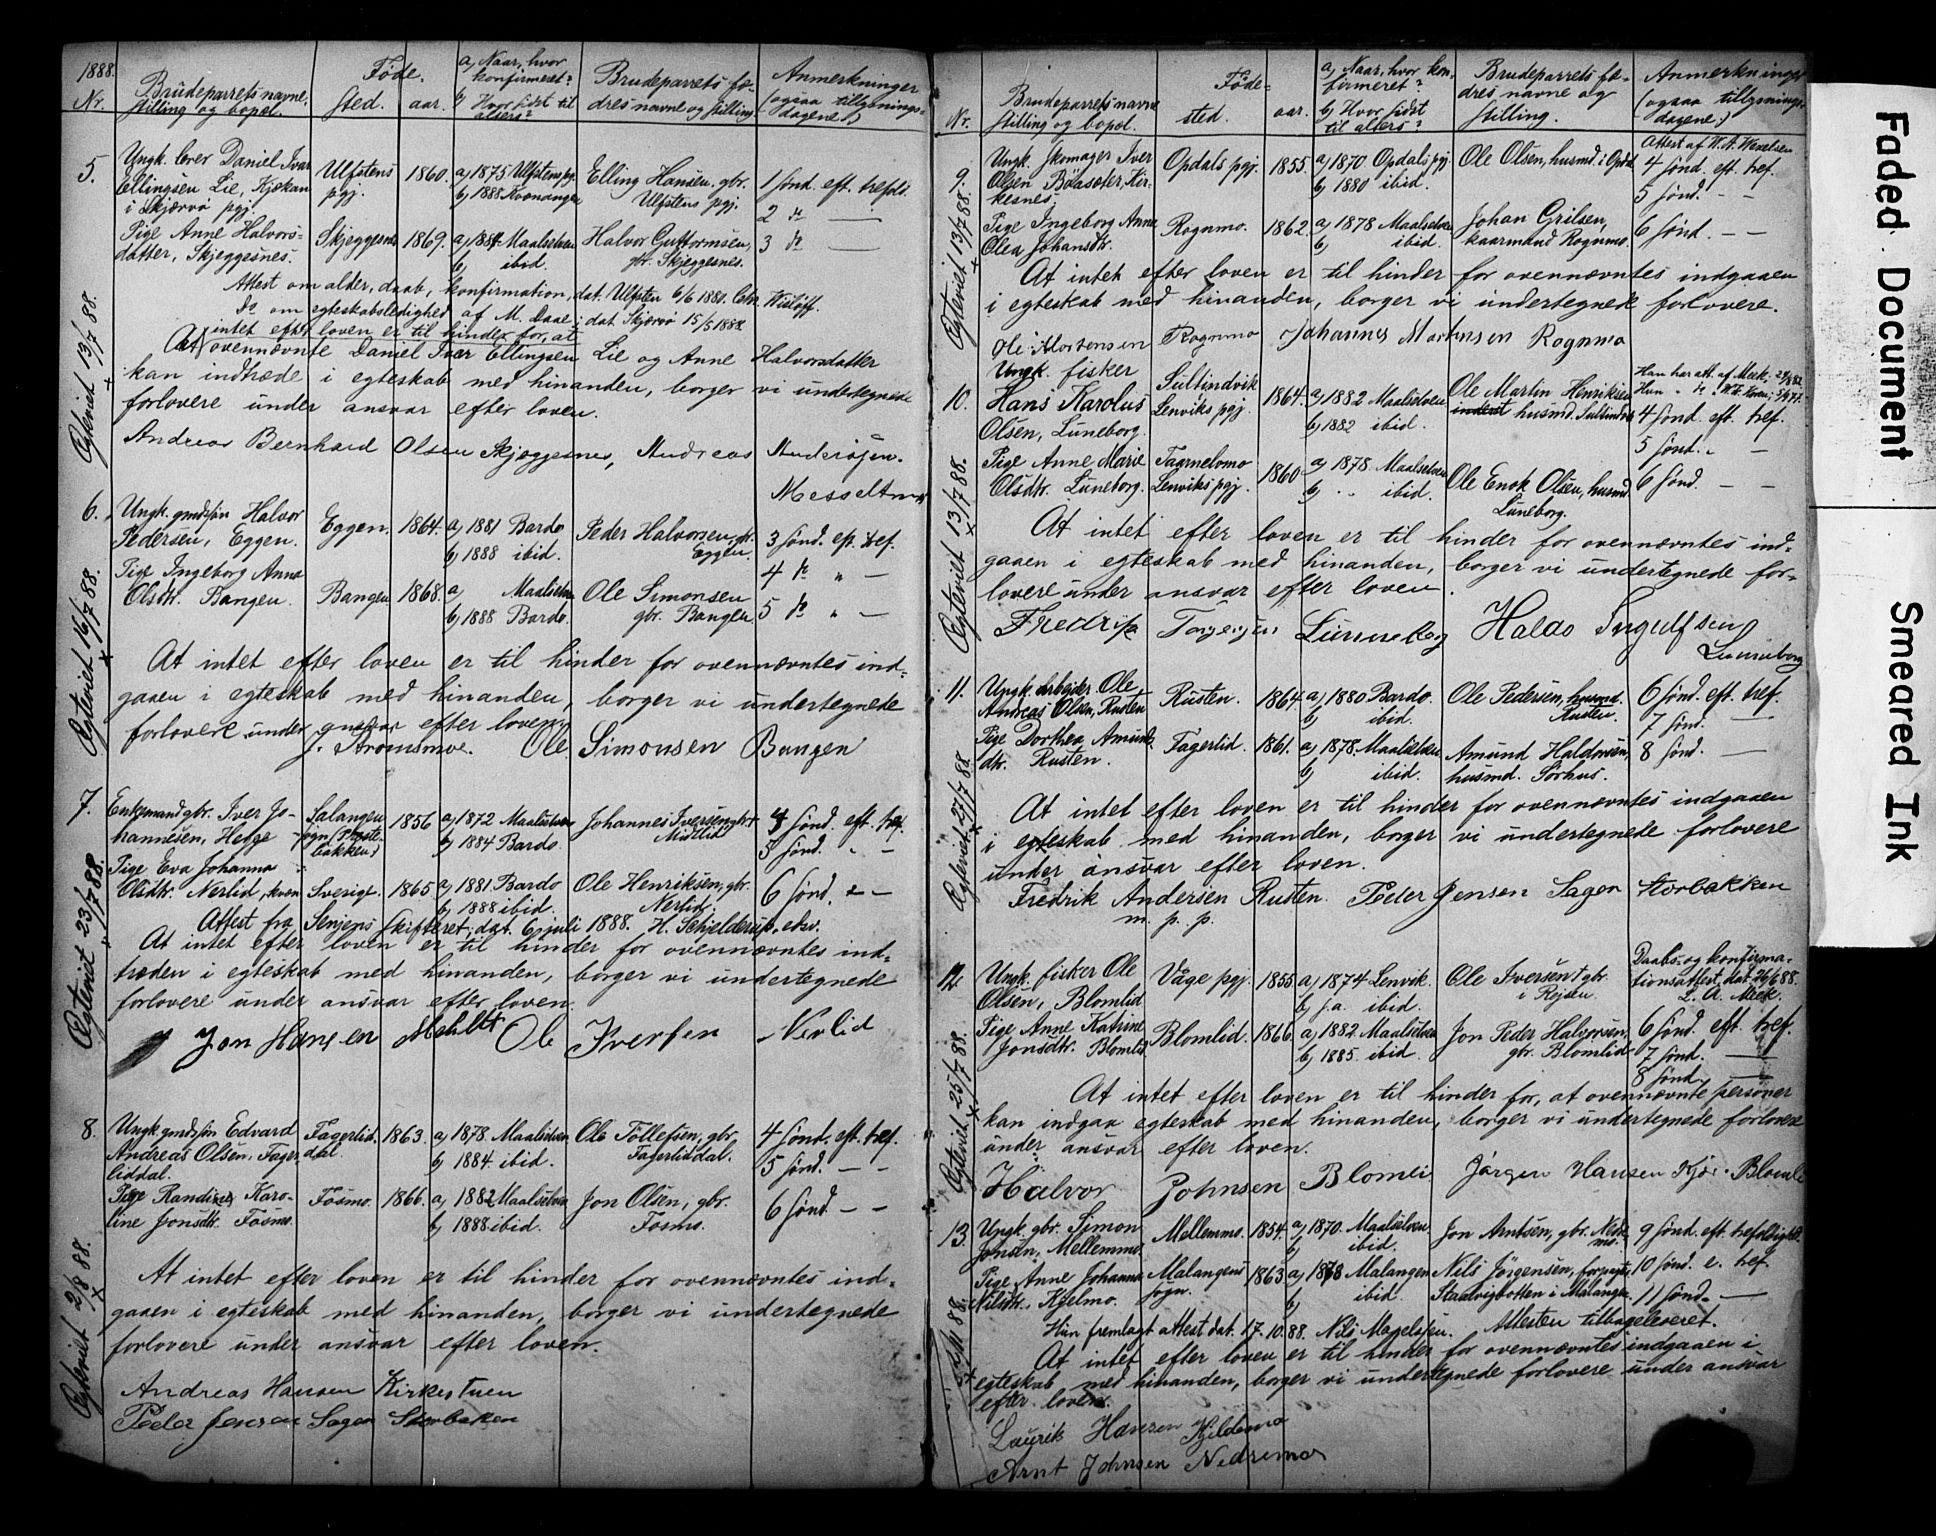 1888.
Nr.
Brudeparrets navne,
stilling og bopæl.
Føde.
sted.
aar.
a, Naar, hvor
konfirmeret?
b, Hvor sidst til
alters?
Brudeparrets fæ-
dres navne og stilling
Anmerkninger
(ogsaa tillysnings-
dagene.)
5.
Ungk. lærer Daniel Ivar
Ellingsen Lie, Kjækan
i Skjærvø pgj.
Ulfstens
pgj.
1860.
a, 1875 Ulfstens pgj.
b, 1888 Kvænangen
Elling Hansen, gbr.
Ulfstens pgj.
1 sønd. eft. trefold.
2 do —
3 do —
Pige Anne Halvors-
datter, Skjeggesnes.
Skjeggesnes
1869.
a, 1884 Maalselven
b, ibid.
Halvor Guttormsen,
gbr. Skjeggesnes.
Attest om alder, daab, konfirmation, dat. Ulfsten 6/6 1881. Wisløff.
do om egteskabsledighed af M. Daae; dat. Skjærvø 15/5 1888.
intet efter loven er til hinder for, at
At ovennævnte Daniel Ivar Ellingsen Lie og Anne Halvorsdatter
kan indtræde i egteskab med hinanden, borger vi undertegnede
forlovere under ansvar efter loven.
Andreas Bernhard Olsen Skjæggesnes, Andreas Andersøjen.
Messeltmo
Egteviet 13/7 88.
6.
Ungk. gmdssøn Halvor
Pedersen, Eggen.
Eggen.
1864.
a, 1881 Bardo
b, 1888 ibid.
Peder Halvorsen, gbr.
Eggen.
3 sønd. ep. tref.
4 do " —
5 do " —
Pige Ingeborg Anna
Olsdtr. Bangen.
Bangen
1868.
a, Maalselven
b, 1888 Bardo.
Ole Simonsen
gbr. Bangen
At intet efter loven er til hinder for ovennævntes ind-
gaaen i egteskab med hinanden, borger vi undertegnede
forlovere under ansvar efter loven.
J. Strømsmoe. Ole Simonsen Bangen
Egteviet 16/7 88.
7.
Enkemand gbr. Iver Jo-
hannesen, Hegge
Salangen
sogn
bakken)
1856
a, 1872 Maalselven
b, 1884 Bardo
Johannes Iversen, gbr.
Midtlid
4 sønd. eft. tref.
5 sønd. " —
6 sønd. " —
Pige Eva Johanna
Olsdtr. Nerlid, kvæn
Sverige.
1865
a, 1881 Bardo
b, 1888 ibid.
Ole Henriksen, gbr.
Nerlid.
Attest fra Senjens Skifteret, dat. 6 juli 1888. H. Schjelderup, edsv.
At intet efter loven er til hinder for ovennævntes ind-
træden i egteskab med hinanden, borger vi undertegnede
forlovere under ansvar efter loven.
Jon Hansen Ole Iversen Nerlid
Egteviet 23/7 88.
8.
Ungk. gmdssøn Edvard
Andreas Olsen, Fager-
liddal.
Fagerlid-
dal.
1863.
a, 1878. Maalselven
b, 1884. ibid.
Ole Tollefsen, gbr.
Fagerliddal.
4 sønd. eft. tref.
5 sønd. — —
6 sønd — —
Pige Randine Karo-
line Jonsdtr. Fosmo.
Fosmo.
1866.
a, 1882 Maalselven
b, 1888 ibid.
Jon Olsen, gbr.
Fosmo.
At intet efter loven er til hinder for ovennævntes ind-
gaaen i egteskab med hinanden, borger vi undertegnede
forlovere under ansvar efter loven.
Andreas Hansen Kirkestuen
Peder Jensen Sagen Storbaken
Egteviet 2/8 88.
Nr.
Brudeparrets navne
stilling og bopæl.
Føde-
sted.
aar.
a, Naar, hvor kon-
firmeret?
b, Hvor sidst
til alters?
Brudeparrets fæ-
dres navne og
stilling.
Anmerkninger
(ogsaa tillysnings-
dagene.)
9.
Ungk. skomager Iver
Olsen Böasæter, Kir-
kesnes,
Opdals pgj.
1855.
a, 1870 Opdals pgj.
b, 1880 ibid.
Ole Olsen, husmd. i Opdal
Attest af W. A. Wexelsen
4 sønd. eft. tref.
5 sønd. — —
6 sønd. — —
Pige Ingeborg Anna
Olea Johansdtr.
Rognmo.
1862.
a, 1878 Maalselven
b, ibid.
Johan Grilsen,
kaarmand Rognmo.
At intet efter loven er til hinder for ovennævntes indgaaen
i egteskab med hinanden, borger vi undertegnede forlovere.
Ole Mortensen Rognmo Johannes Martinsen Rognmo
Egteviet 13/7 88.
10.
Ungk. fisker
Hans Karolus
Olsen, Luneborg.
Sultindvik
Lenviks pgj.
1864.
a, 1882 Maalselven
b, 1882 ibid.
Ole Martin Henriksen
inderst husmd. Sultindvik
Han har att. af Meek, 24/6 82
4 sønd. eft. tref.
5 sønd. " —
6 sønd. — —
Pige Anne Marie
Olsdtr. Luneborg.
Taarnelomo
Lenviks pgj.
1860
a, 1878. Maalselven
b, " " ibid.
Ole Enok Olsen, husmd.
Luneborg.
At intet efter loven er til hinder for ovennævntes ind-
gaaen i egteskab med hinanden, borger vi undertegnede for-
lovere under ansvar efter loven.
Fredrik Torgersen Lunneborg Haldo Ingulfsen
Lunneborg
Egteviet 13/7 88.
11.
Ungk. arbeider Ole
Andreas Olsen, Rusten
Rusten.
1864
a, 1880 Bardo.
b, ibid.
Ole Pedersen, husmd.
Rusten.
6 sønd. eft. tref.
7 sønd. —
8 sønd. —
Pige Dorthea Amunds-
dtr. Rusten.
Fagerlid.
1861.
a, 1878. Maalselven
b, ibid.
Amund Haldorsen,
husmd. Sørhus.
At intet efter loven er til hinder for ovennævntes indgaaen
i egteskab med hinanden, borger vi undertegnede forlovere
under ansvar efter loven.
Fredrik Andersen Rusten. Peder Jensen Sagen Storbakken
m. p. p.
Egteviet 27/7 88.
12.
Ungk. fisker Ole
Olsen, Blomlid
Våge pgj.
1855
a, 1874 Lenvik.
b, s.a. ibid.
Ole Iversen † gbr.
i Rejsen.
Daabs- og konfirma-
tionsattest, dat. 26/6 88.
L. A. Meek.
6 sønd. eft. tref.
7 sønd. —
8 sønd. —
Pige Anne Katrine
Jonsdtr. Blomlid.
Blomlid.
1866.
a, 1882. Maalselven
b, 1885. ibid.
Jon Peder Halvorsen,
gbr. Blomlid
At intet efter loven er til hinder for, at ovennævnte personer
kan indgaa egteskab med hinanden, borger vi undertegnede forlovere
under ansvar efter loven.
Halvor Johnsen Blomli Jørgen Hansen Kjær. Blomli
Egteviet 25/7 88.
13.
Ungk. gbr. Simon
Jonsen, Mellemmo.
Mellemmo.
1854.
a, 1870. Maalselven
b, ibid.
Jon Arntsen, gbr. Nedre-
mo.
9 sønd. eft. trefoldighed.
10 sønd. e. tref.
11 sønd. —
Pige Anne Johanna
Nilsdtr. Kjelmo.
Malangens
sogn.
1863
a, 1878 Malangen
b, ibid.
Nils Jörgensen, forpagter
Staalvigbotten i Malangen
Hun fremlagt attest dat. 17.10.88. Nils Magelssen. Attesten tilbageleveret.
At intet efter loven er til hinder for ovennævntes indgaaen i
egteskab med hinanden, borger vi undertegnede forlovere under ansvar
efter loven.
Laurik Hansen Kjildemo
Arnt Johnsen Nedremo
Faded Document
Smeared Ink